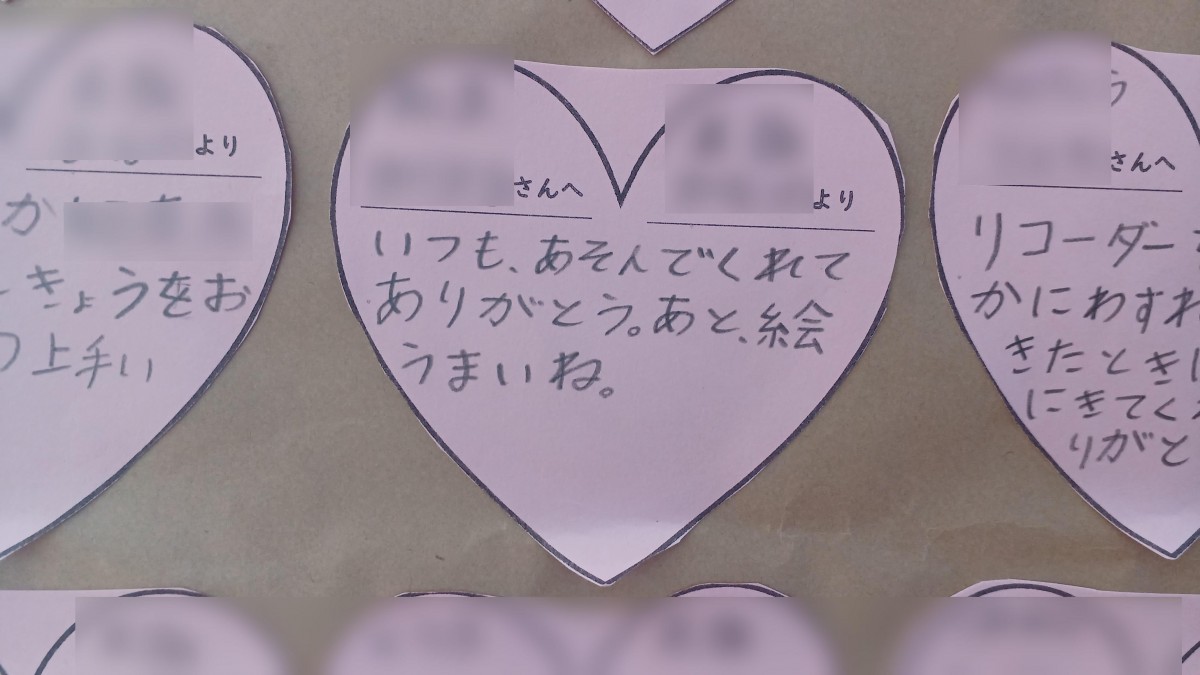 より
きょうをお
上手い
さんへ
より
いつも、あそんでくれて
ありがとう。あと、絵
うまいね。
さんへ
リコーダー
かにわすれ
きたとき
にきてく
りがと